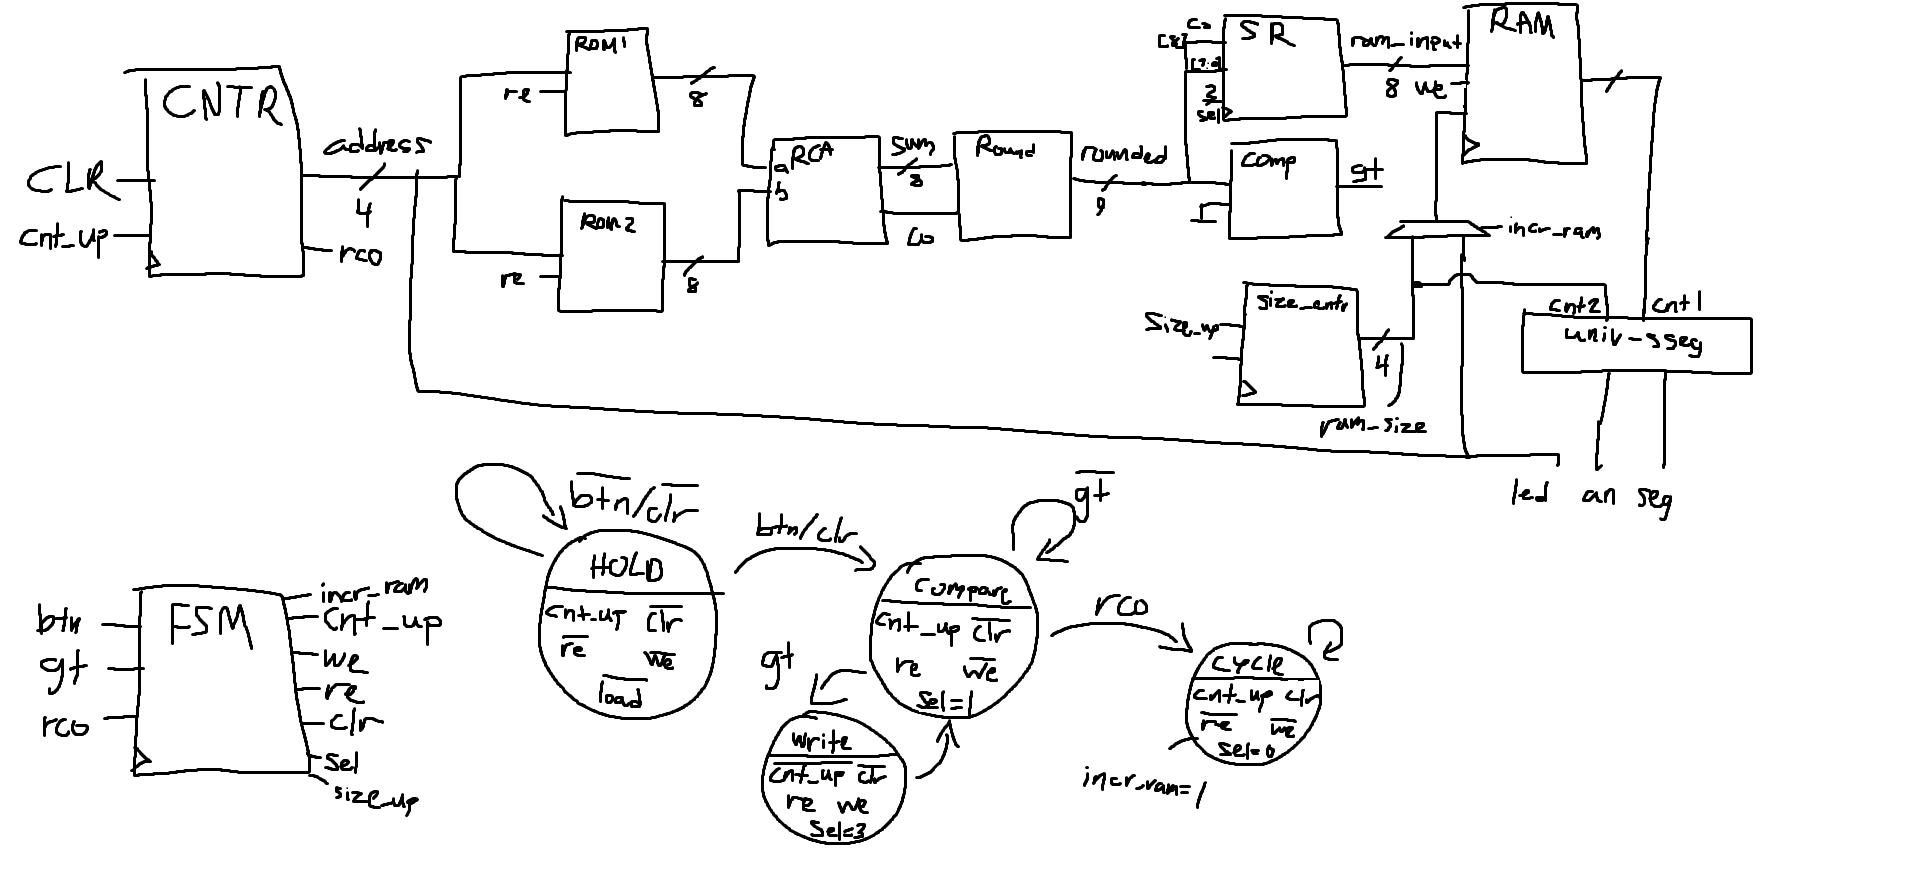 CNTR
CLR
cnt_up
address
4
rco
ROM1
re
8
ROM2
re
8
RCA
a
b
sum
8
Co
Round
rounded
9
Co
[8]
[7:0]
2
sel
SR
ram_input
8
we
RAM
comp
gt
incr_ram
size_cntr
size_up
4
ram_size
cnt2
cnt1
univ-sseg
led
an
seg
FSM
btn
gt
rco
incr_ram
cnt_up
we
re
clr
sel
size_up
btn/clr
HOLD
cnt_up clr
re we
load
btn/clr
gt
Compare
cnt_up clr
re we
sel=1
gt
write
cnt_up clr
re we
sel=3
rco
cycle
cnt_up clr
re we
sel=0
incr_ram=1